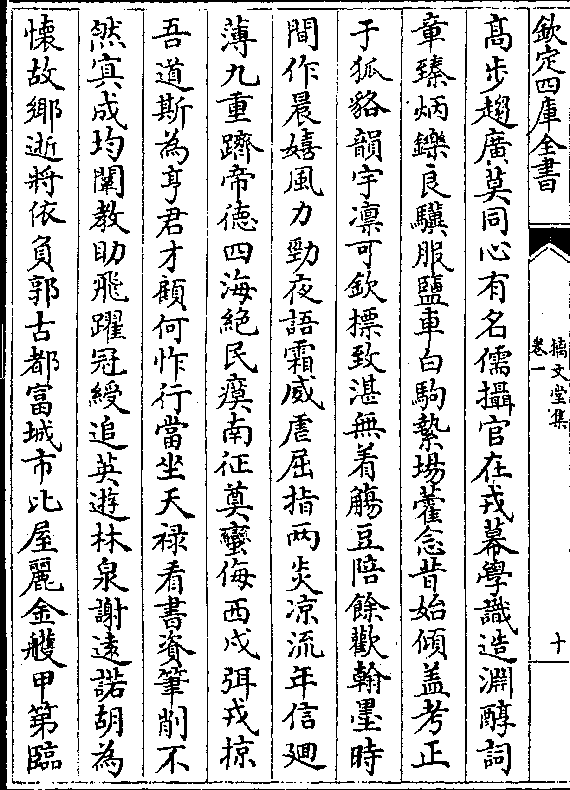 欽定四庫全書
摛文堂集
卷一
十
高步趨廣莫同心有名儒攝官在戎幕學識造淵醇詞
章臻炳鑠良驥服鹽車白駒縶場藿念昔始傾盖考正
于狐貉韻宇凛可欽摽致湛無着觴豆陪餘歡翰墨時
間作晨嬉風力勁夜語霜威虐屈指两炎凉流年信廻
薄九重躋帝德四海絶民瘼南征奠蠻侮西戍弭戎掠
吾道斯為亨君才顧何怍行當坐天禄看書資筆削不
然寘成均闡教助飛躍冠綬追英遊林泉謝逺諾胡為
懐故鄉逝將依負郭古都富城市比屋麗金雘甲第臨